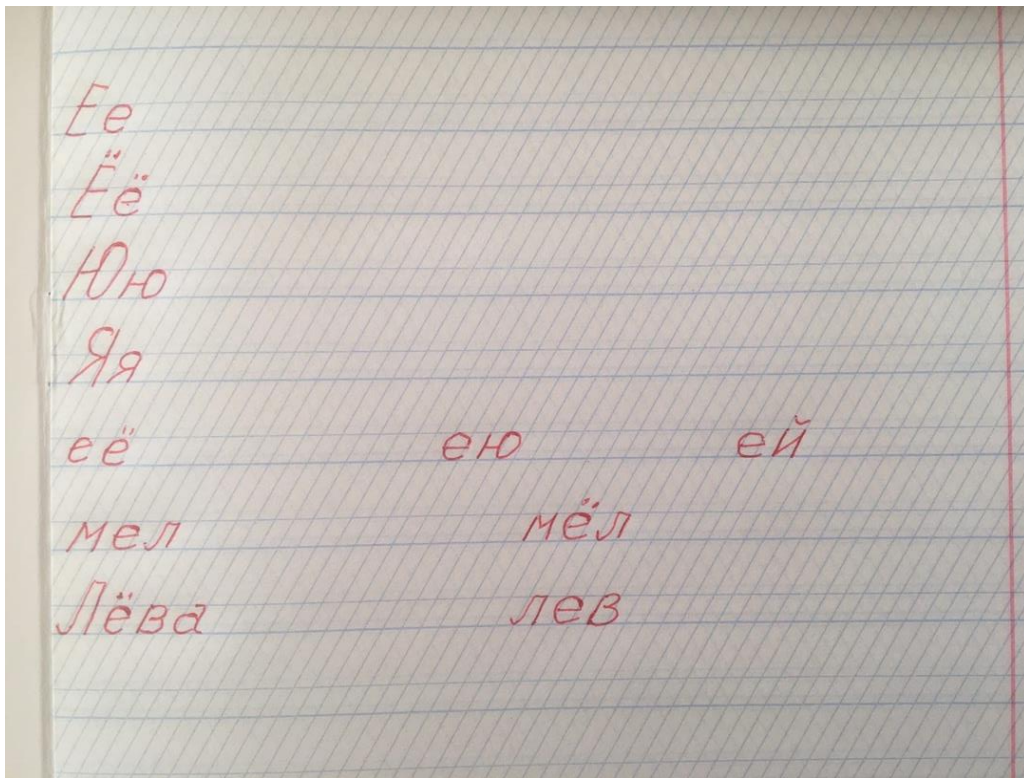 Ее
Ёё
Юю
Яя
её ею ей
мел мёл
Лёва лев